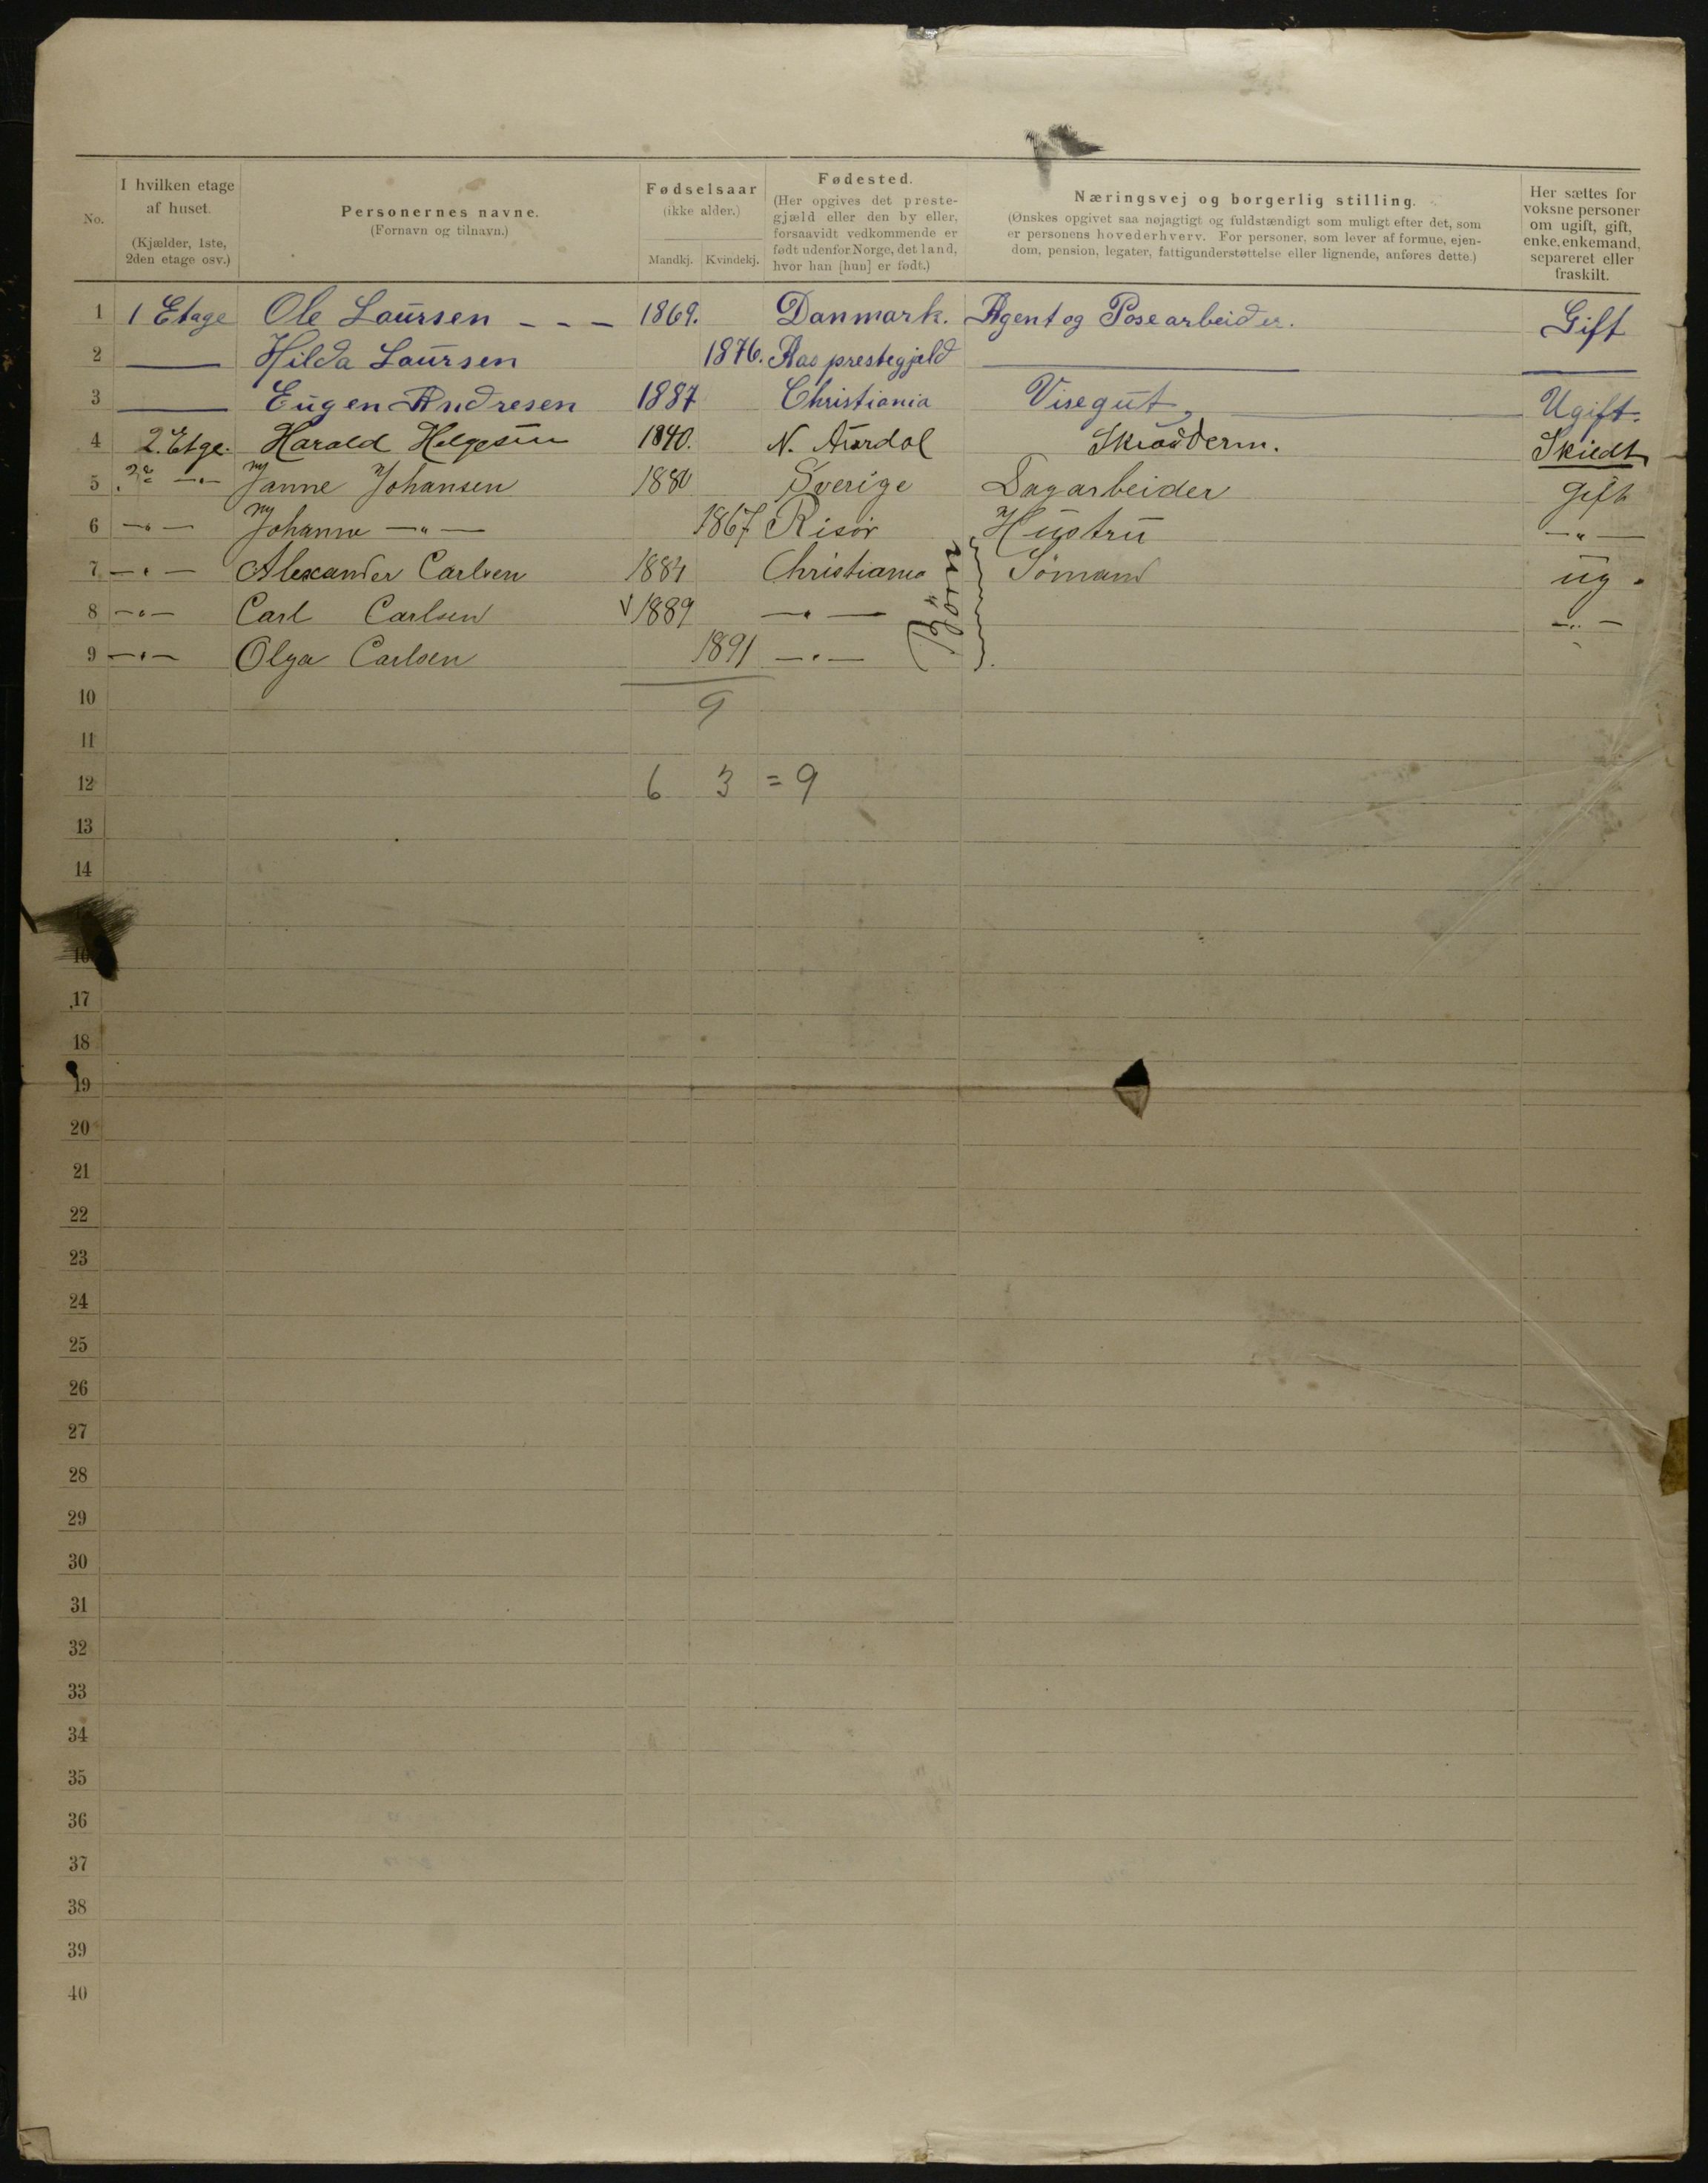 No.
I hvilken etage af huset.
(Kjælder, 1ste, 2den etage osv.)
Personernes navne.
(Fornavn og tilnavn.)
Fødselsaar
(ikke alder.)
Mandkj. Kvindekj.
Fødested.
(Her opgives det preste-
gjæld eller den by eller,
forsaavidt vedkommende er
født udenfor Norge, det land,
hvor han [hun] er født.)
Næringsvej og borgerlig stilling.
(Ønskes opgivet saa nøjagtigt og fuldstændigt som muligt efter det, som
er personens hovederhverv. For personer, som lever af formue, ejen-
dom, pension, legater, fattigunderstøttelse eller lignende, anføres dette.)
Her sættes for
voksne personer
om ugift, gift,
enke, enkemand,
separeret eller
fraskilt.
1 1 Etage Ole Laursen - - - 1869. Danmark. Agent og Posearbeider. Gift
2 — Hilda Laursen 1876. Aas prestegjeld — —
3 — Eugen Andresen 1887 Christiania Visegut, — Ugift.
4 2. Etge. Harald Helgesen 1840. N. Aurdal Skrædderm. Skildt
5 2 —"— Janne Johansen 1880 Sverige Dagarbeider gift
6 —"— Johanne —"— 1867 Risör Hustru —"—
7 —"— Alexander Carlsen 1884 Christiania Sömand ug.
8 —"— Carl Carlsen √ 1889 —"— —"—
9 —"— Olga Carlsen 1891 —"—
Börn
10 9
11
12 6 3 = 9
13
14
16
17
18
19
20
21
22
23
24
25
26
27
28
29
30
31
32
33
34
35
36
37
38
39
40